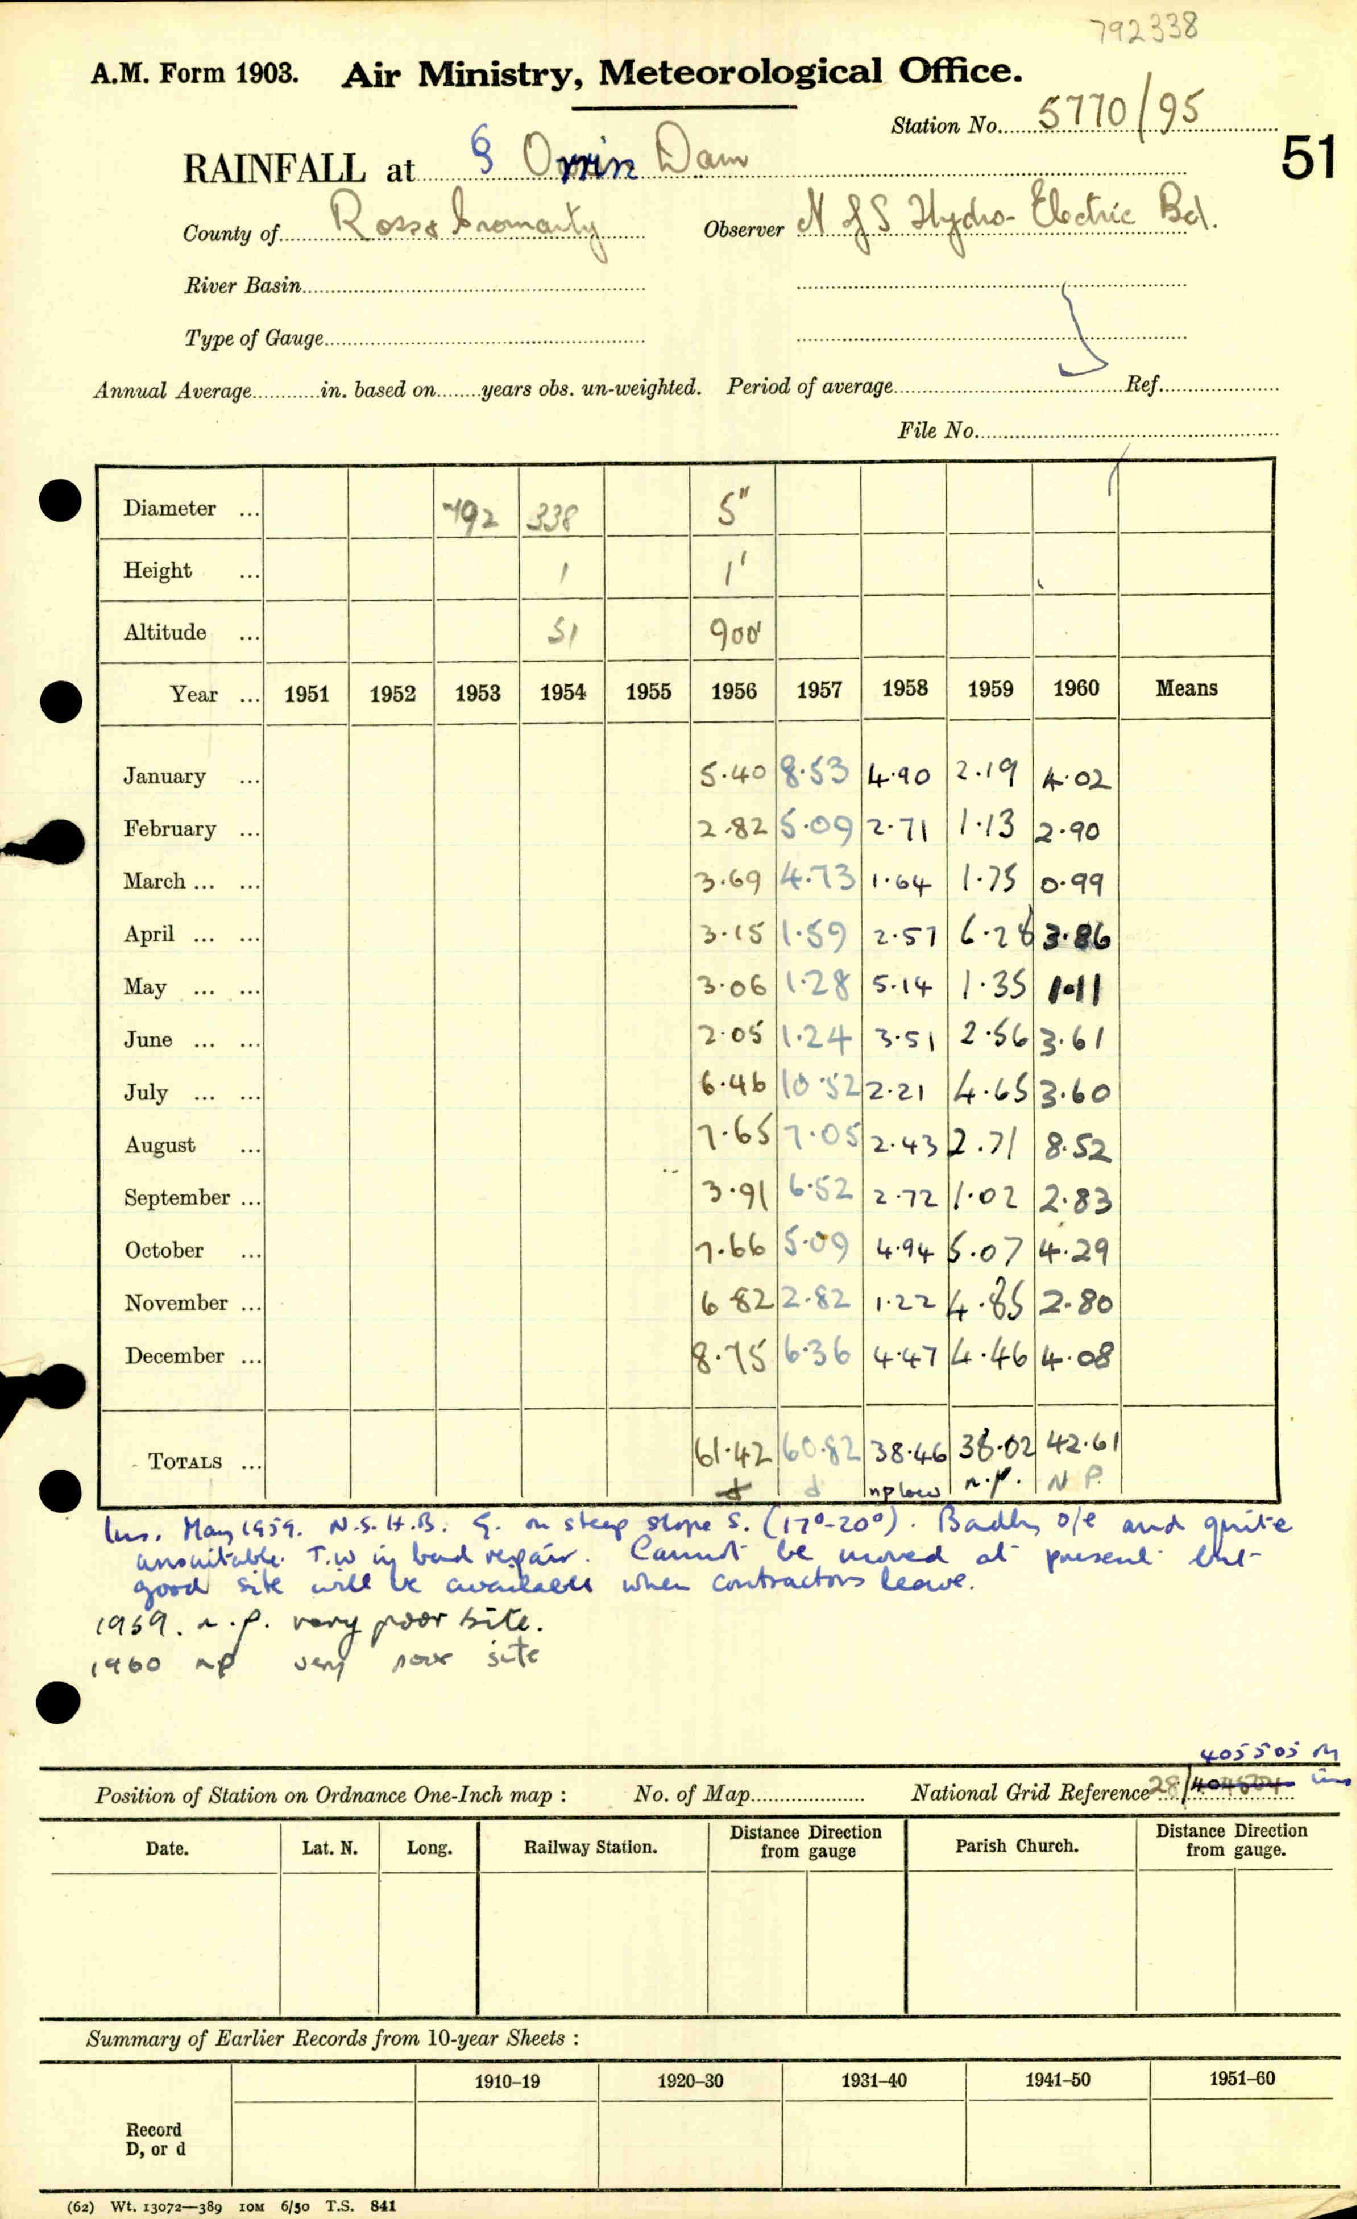 792338
A.M. Form 1903. Air Ministry, Meteorological Office.
Station No. 5770/95
51
RAINFALL at § Orrin Dam
County of Ross & Cromarty Observer N of S Hydro-Electric Bd.
River Basin
Type of Gauge
Annual Average in. based on years obs. un-weighted. Period of average Ref.
File No.
Diameter ... 792 338 5"
Height ... 1 1'
Altitude ... 51 900'
Year ... 1951 1952 1953 1954 1955 1956 1957 1958 1959 1960 Means
January ... 5.40 8.53 4.90 2.19 4.02
February ... 2.82 5.09 2.71 1.13 2.90
March ... ... 3.69 4.73 1.64 1.75 0.99
April ... ... 3.15 1.59 2.57 6.28 3.86
May ... ... 3.06 1.28 5.14 1.35 1.11
June ... ... 2.05 1.24 3.51 2.56 3.61
July ... ... 6.46 10.52 2.21 4.65 3.60
August ... 7.65 7.05 2.43 2.71 8.52
September ... 3.91 6.52 2.72 1.02 2.83
October ... 7.66 5.09 4.94 5.07 4.29
November ... 6 82 2.82 1.22 4.85 2.80
December ... 8.75 6.36 4.47 4.46 4.08
TOTALS ... 61.42 60.82 38.46 38.02 42.61
d d np low n.p. N P.
Ins. May 1959. N.S.H.B. G. on steep slope S. (17°-20°). Badly o/e and quite
unsuitable. T.W in bad repair. Cannot be moved at present but
good site will be available when contractors leave.
1959. n.p. very poor site.
1960 np very poor site
405505 M
Position of Station on Ordnance One-Inch map : No. of Map National Grid Reference 28/ ins
Date. Lat. N. Long. Railway Station. Distance from Direction gauge Parish Church. Distance from Direction gauge.
Summary of Earlier Records from 10-year Sheets :
1910–19 1920–30 1931–40 1941–50 1951–60
Record
D, or d
(62) Wt. 13072—389 10M 6/50 T.S. 841